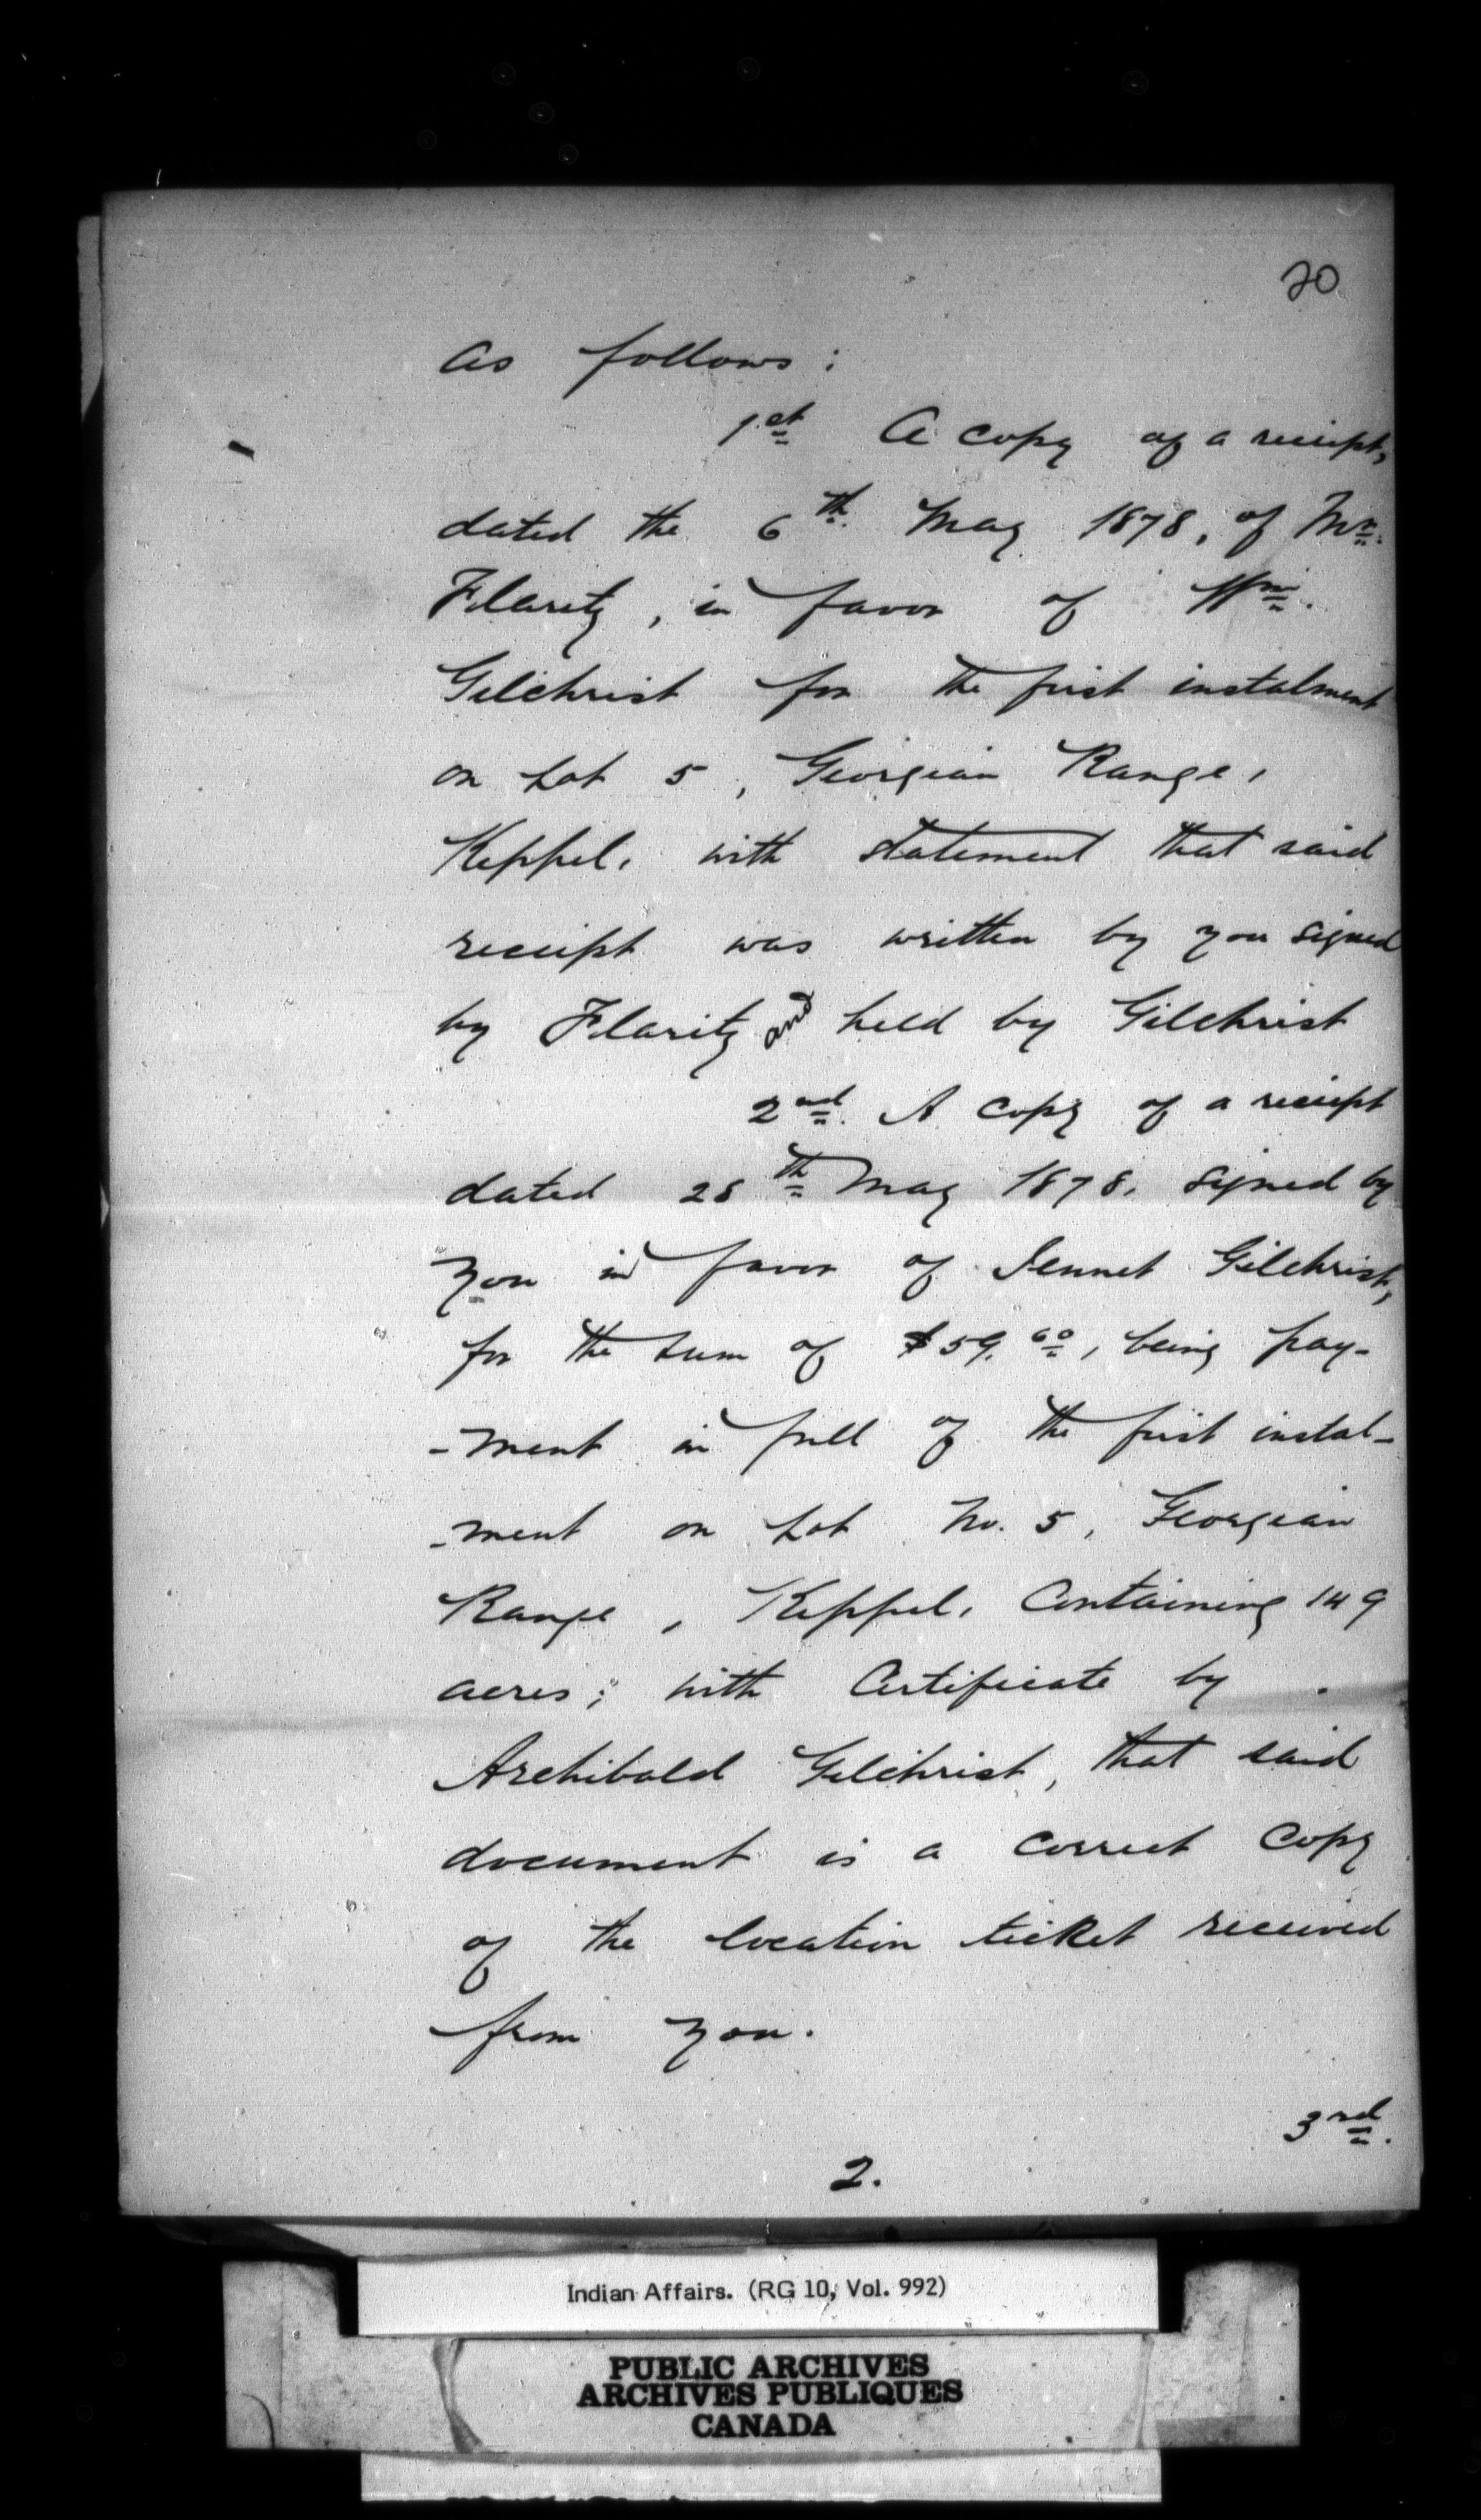 20
as follows:
1st A copy of a receipt,
dated the 6th May 1878, of Mr.
Flarity, in favor of Wm.
Gilchrist for the first instalment
on Lot 5, Georgian Range,
Keppel, with statement that said
receipt was written by you signed
by Flarity and held by Gilchrist
2nd. A copy of a receipt
dated 28th May 1878, signed by
you in favor of Jennet Gilchrist,
for the sum of $59.60, being pay-
-ment in full of the first instal-
-ment on Lot No. 5, Georgian
Range, Keppel, Containing 149
acres; with Certificate by
Archibald Gilchrist, that said
document is a correct copy
of the location ticket received
from you.
3rd.
2.
Indian Affairs. (RG 10, Vol. 992)
PUBLIC ARCHIVES
ARCHIVES PUBLIQUES
CANADA